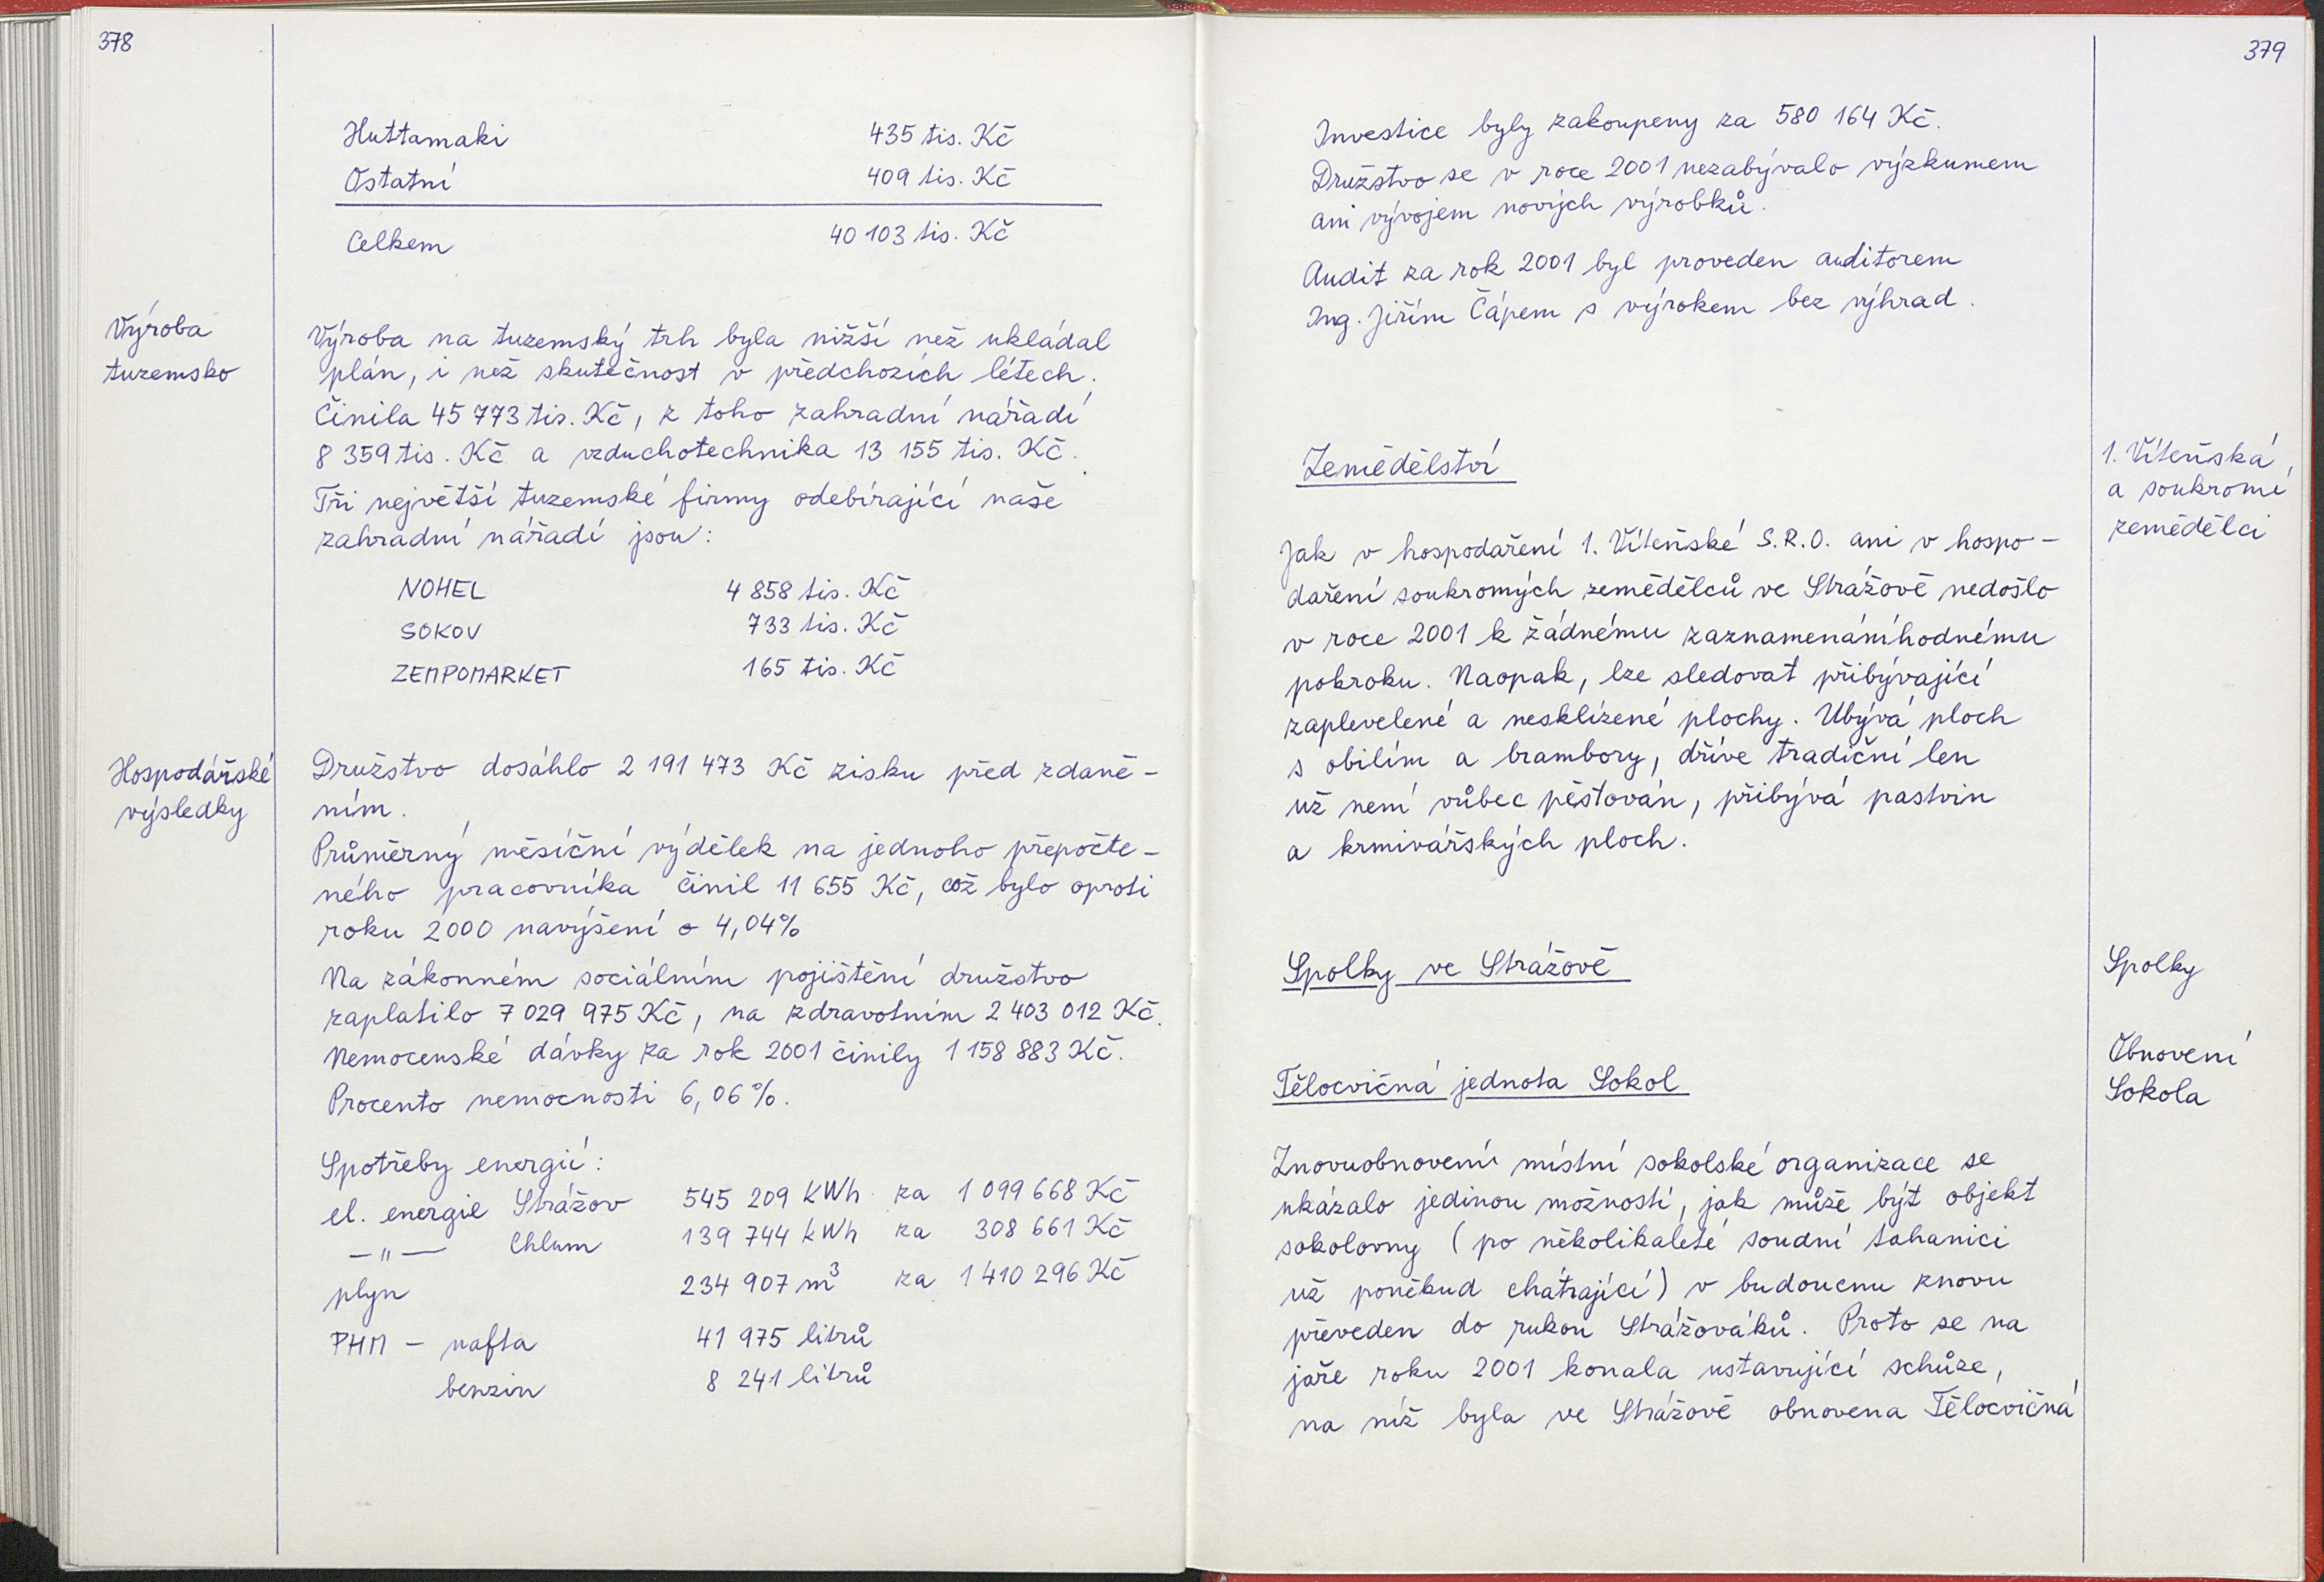 378
Huttamaki 435 tis. Kč
Ostatní 409 tis. Kč
Celkem 40 103 tis. Kč
Výroba
tuzemsko
Výroba na tuzemský trh byla nižší než ukládal
plán, i než skutečnost v předchozích létech.
Činila 45 773 tis. Kč, z toho zahradní nářadí
8 359 tis. Kč a vzduchotechnika 13 155 tis. Kč.
Tři největší tuzemské firmy odebírající naše
zahradní nářadí jsou:
NOHEL 4 858 tis. Kč
SOKOV 733 tis. Kč
ZEMPOMARKET 165 tis. Kč
Hospodářské
výsledky
Družstvo dosáhlo 2 191 473 Kč zisku před zdaně-
ním.
Průměrný měsíční výdělek na jednoho přepočte-
ného pracovníka činil 11 655 Kč, což bylo oproti
roku 2000 navýšení o 4,04%
Na zákonném sociálním pojištění družstvo
zaplatilo 7 029 975 Kč, na zdravotním 2 403 012 Kč.
Nemocenské dávky za rok 2001 činily 1 158 883 Kč.
Procento nemocnosti 6,06%.
Spotřeby energií:
el. energie Strážov 545 209 kWh za 1 099 668 Kč
—"— Chlum 139 744 kWh za 308 661 Kč
plyn 234 907 m³ za 1 410 296 Kč
PHM - nafta 41 975 litrů
benzin 8 241 litrů
379
Investice byly zakoupeny za 580 164 Kč.
Družstvo se v roce 2001 nezabývalo výzkumem
ani vývojem nových výrobků.
Audit za rok 2001 byl proveden auditorem
Ing. Jiřím Čápem s výrokem bez výhrad.
Zemědělství
1. Víteňská
a soukromí
zemědělci
Jak v hospodaření 1. Víteňské S.R.O. ani v hospo-
daření soukromých zemědělců ve Strážově nedošlo
v roce 2001 k žádnému zaznamenáníhodnému
pokroku. Naopak, lze sledovat přibývající
zaplevelené a nesklizené plochy. Ubývá ploch
s obilím a brambory, dříve tradiční len
už není vůbec pěstován, přibývá pastvin
a krmivářských ploch.
Spolky ve Strážově
Spolky
Tělocvičná jednota Sokol
Obnovení
Sokola
Znovuobnovení místní sokolské organizace se
ukázalo jedinou možností, jak může být objekt
sokolovny (po několikaleté soudní tahanici
už poněkud chátrající) v budoucnu znovu
převeden do rukou Strážováků. Proto se na
jaře roku 2001 konala ustavující schůze,
na níž byla ve Strážově obnovena Tělocvičná